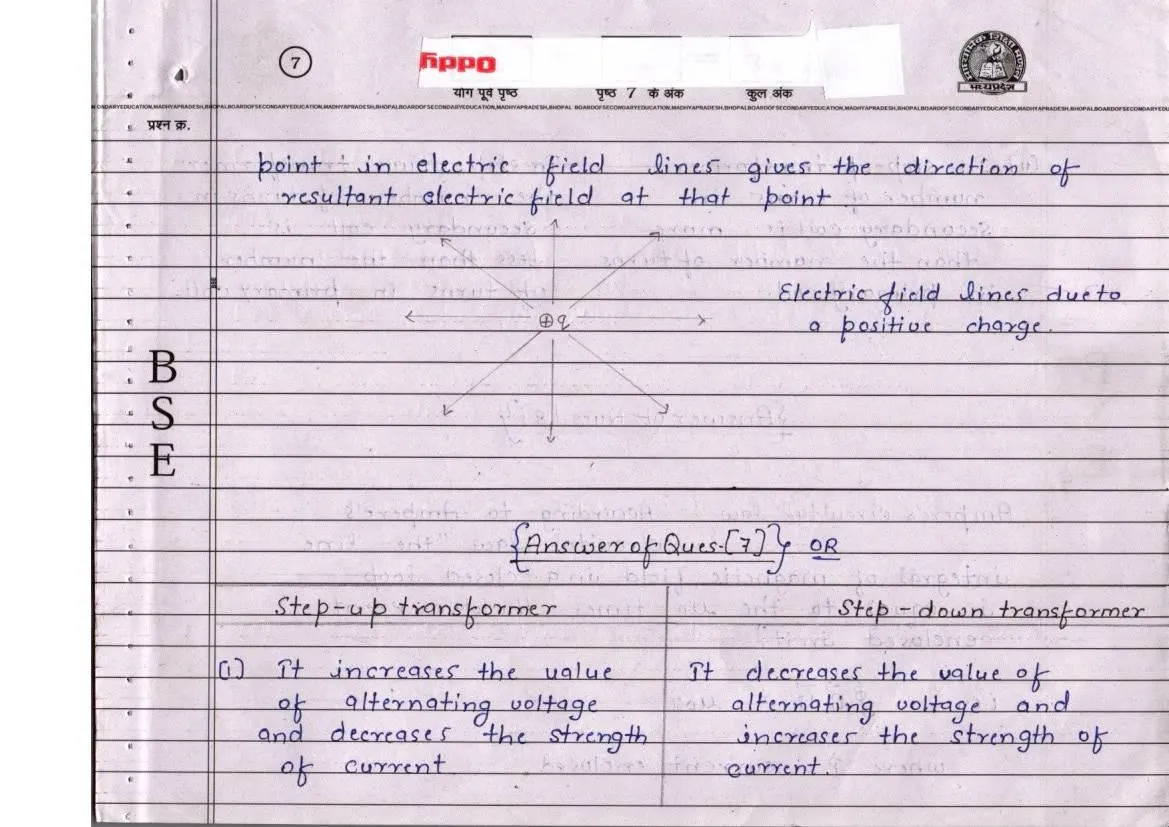 7
oddy
योग पूर्व पृष्ठ पृष्ठ 7 के अंक कुल अंक
माध्यमिक शिक्षा मण्डल
मध्यप्रदेश
ONDARYEDUCATION,MADHYAPRADESH,BHOPALBOARDOFSECONDARYEDUCATION,MADHYAPRADESH,BHOPALBOARDOFSECONDARYEDUCATION,MADHYAPRADESH,BHOPAL BOARDOFSECONDARYEDUCATION,MADHYAPRADESH,BHOPALBOARDOFSECONDARYEDUCATION,MADHYAPRADESH,BHOPALBOARDOFSECONDARYEDU
प्रश्न क्र.
point in electric field lines gives the direction of
resultant electric field at that point
Electric field lines due to
a positive charge.
⊕q
B
S
E
{Answer of Ques.[7]} OR
Step-up transformer Step-down transformer
(i) It increases the value It decreases the value of
of alternating voltage alternating voltage and
and decreases the strength increases the strength of
of current current.